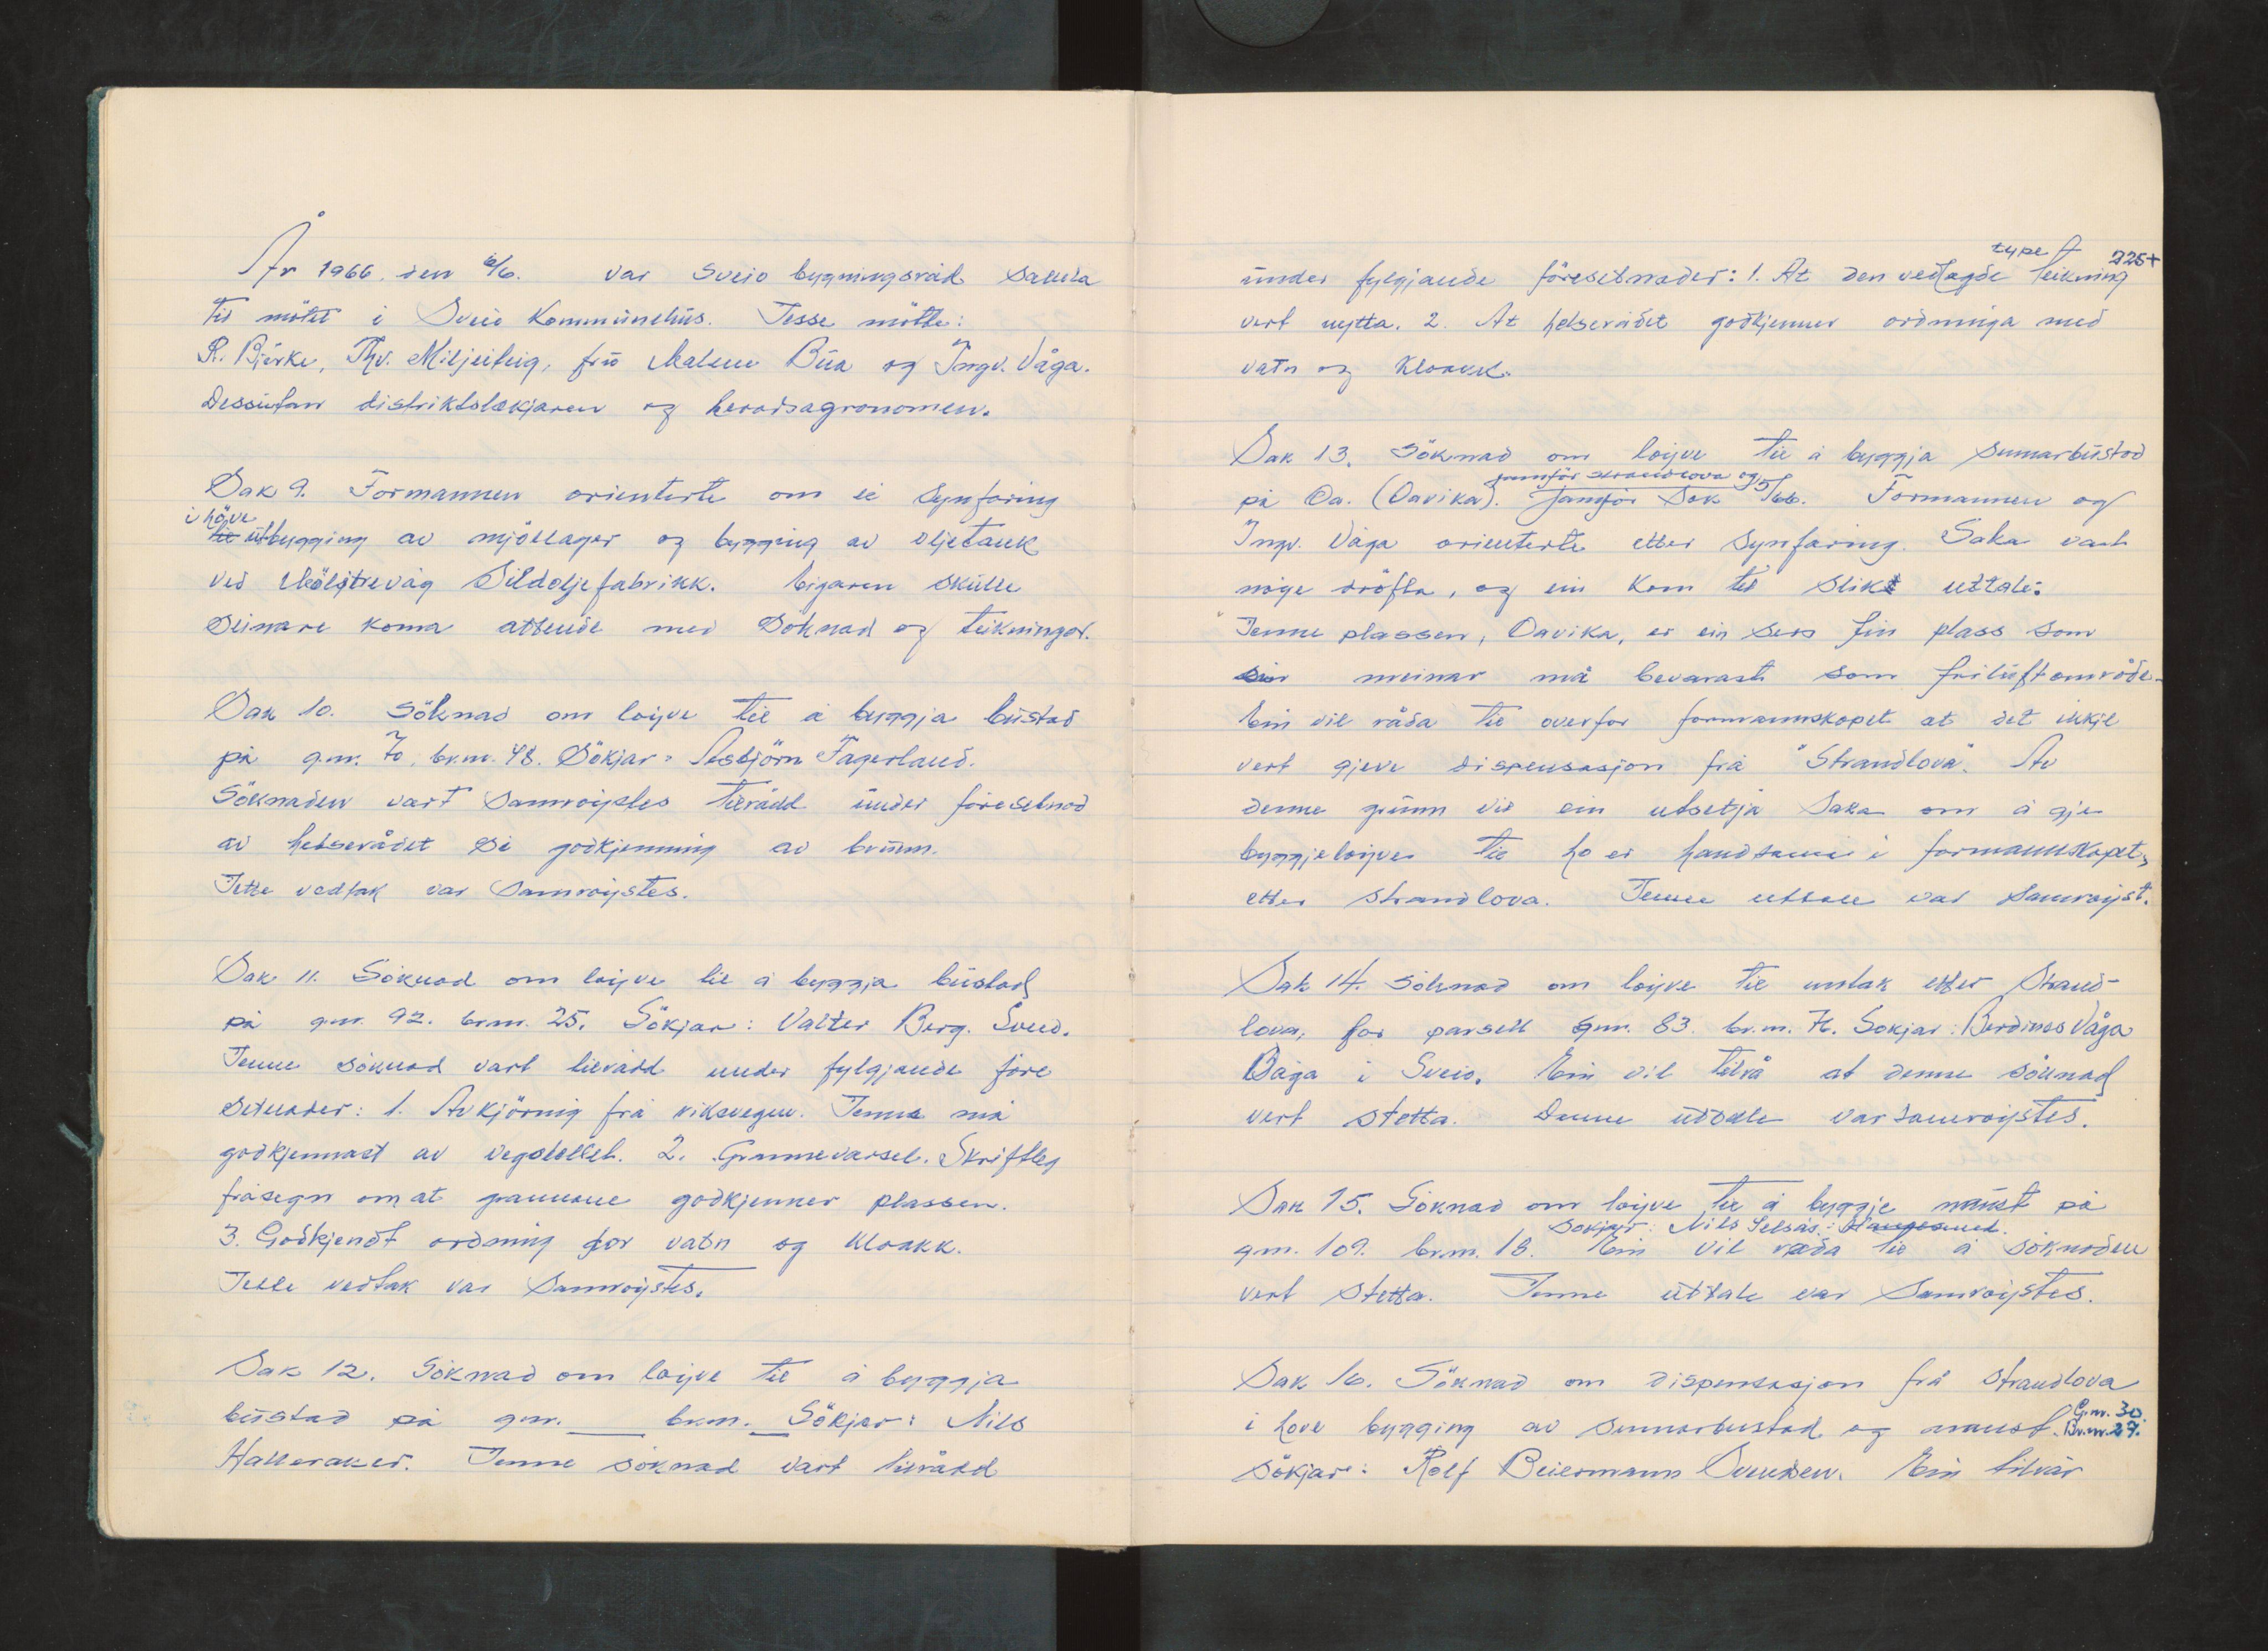 År 1966. den 6/6. var Sveio bygningsråd samla
til møtet i Sveio Kommunehus. Desse møtte:
R. Bjerke, Thv. Miljeiteig, fru Malene Bua og Ingv. Våga.
Dessutan distriktslækjaren og heradsagronomen.
Sak 9. Formannen orienterte om ei synfaring
i höve
til utbygging av mjöllager og bygging av oljetank
ved Mölstrevåg Sildoljefabrikk. Eigaren skulle
seinare koma attende med söknad og teikningar.
Sak 10. Söknad om løyve til å byggja bustad
på gnr. 70, br.nr. 48. Sökjar: Asbjörn Fagerland.
Söknaden vart samrøystes tilrådd under föresetnad
av helserådet si godkjenning av brunn.
Dette vedtak var samrøystes.
Sak 11. Söknad om løyve til å byggja bustad
på gnr. 92. brnr. 25. Sökjar: Valter Berg. Sveio.
Denne söknad vart tilrådd under fylgjande före
setnader: 1. Avkjörnig frå riksvegen. Denne må
godkjennast av vegstellet. 2. Grannevarsel. Skriftleg
fråsegn om at grannane godkjenner plassen.
3. Godkjendt ordning for vatn og kloakk.
Dette vedtak var samrøystes.
Sak 12. Söknad om løyve til å byggja
bustad på gnr. __ brnr. __ Sökjar: Nils
Halleraker. Denne söknad vart tilrådd
type A 225+
under fylgjande föresetnader: 1. At den vedlagde teikning
vert nytta. 2. At helserådet godkjenner ordninga med
vatn og kloakk.
Sak 13. Söknad om løyve til å byggja sumarbustad
jamför strandlova og
på Oa. (Oavika). Jamför Sak 5/66. Formannen og
Ingv. Våga orienterte etter synfaring. Saka vart
nöye dröfta, og ein kom til slik uttale:
"Denne plassen, Oavika, er ein sers fin plass som
ein meinar må bevarast som friluftområde.
Ein vil råda til overfor formannskapet at det ikkje
vert gjeve dispensasjon frå "Strandlova". Av
denne grunn vil ein utsetja saka om å gje
byggjeløyve til ho er handsama i formannskapet,
etter strandlova. Denne uttale var samrøyst.
Sak 14. Söknad om løyve til untak etter Strand-
lova, for parsell gnr. 83. br.nr. 7. Sökjar: Berdines Våga
Våga i Sveio. Ein vil tilrå at denne söknad
vert stetta. Denne uttale var samrøystes.
Sak 15. Söknad om løyve til å byggje naust på
Sökjar: Nils Selsås: Haugesund.
gnr. 109. brnr. 18. Ein vil råda til å söknaden
vert stetta. Denne uttale var samrøystes.
Sak 16. Söknad om dispensasjon frå strandlova
Gnr. 30.
i höve bygging av sumarbustad og naust. Br.nr. 27.
Sökjar: Rolf Beiermann Svendsen. Ein tilrår